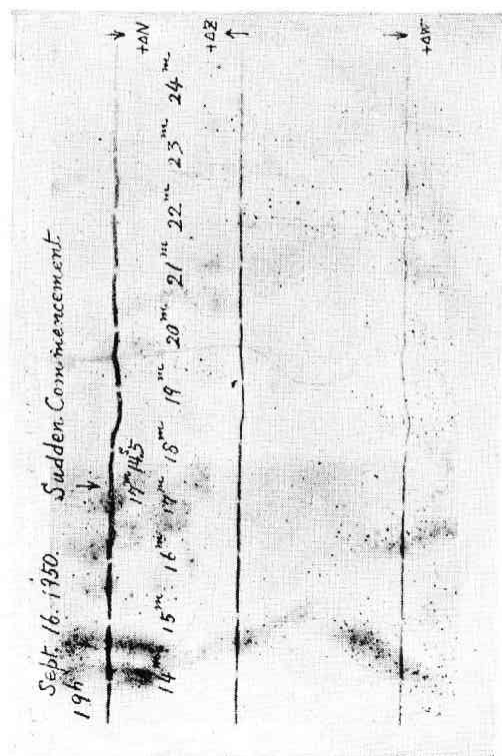 Sept. 16. 1950. Sudden Commencement.
19h
↓
17m 14s.5
14m 15m 16m 17m 18m 19m 20m 21m 22m 23m 24m
+ΔN
+ΔZ
+ΔW